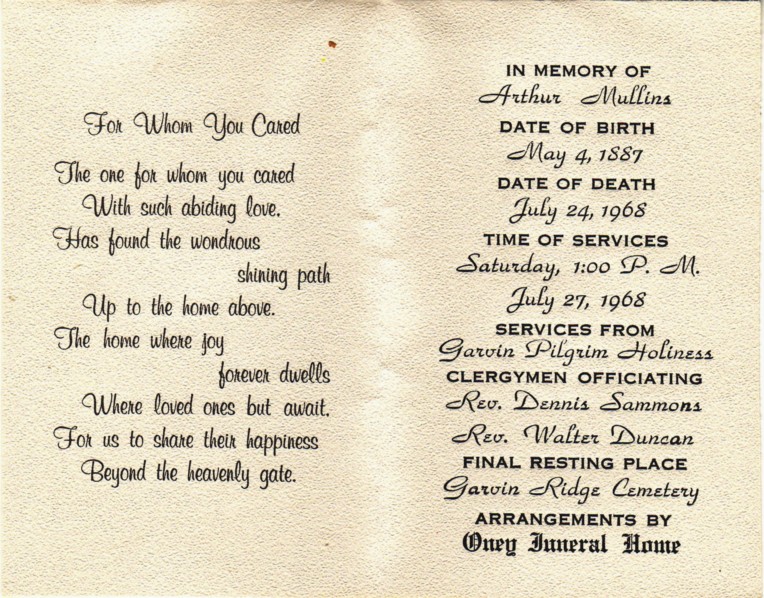 For Whom You Cared
The one for whom you cared
With such abiding love.
Has found the wondrous
shining path
Up to the home above.
The home where joy
forever dwells
Where loved ones but await.
For us to share their happiness
Beyond the heavenly gate.
IN MEMORY OF
Arthur Mullins
DATE OF BIRTH
May 4, 1887
DATE OF DEATH
July 24, 1968
TIME OF SERVICES
Saturday, 1:00 P. M.
July 27, 1968
SERVICES FROM
Garvin Pilgrim Holiness
CLERGYMEN OFFICIATING
Rev. Dennis Sammons
Rev. Walter Duncan
FINAL RESTING PLACE
Garvin Ridge Cemetery
ARRANGEMENTS BY
Oney Funeral Home